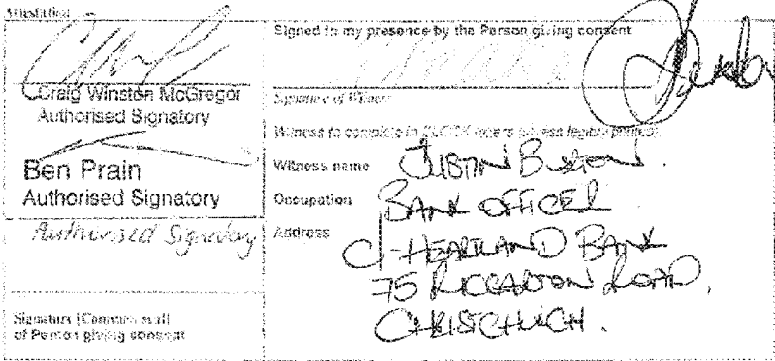 Attestation
Craig Winston McGregor
Authorised Signatory
Ben Prain
Authorised Signatory
Authorised Signatory
Signature [Common seal]
of Person giving consent
Signed in my presence by the Person giving consent
Signature of Witness
Witness to complete in BLOCK letters (unless legibly printed)
Witness name JUSTIN
Occupation BANK OFFICER
Address C/- HEARTLAND BANK
75 RICCARTON ROAD,
CHRISTCHURCH.